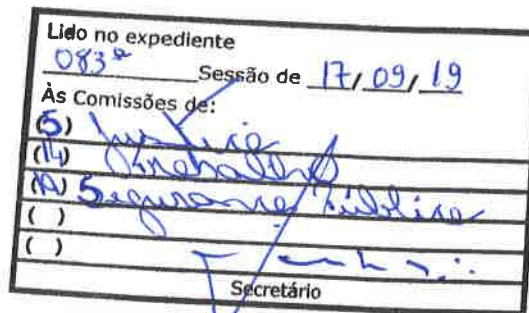 Lido no expediente
083ª Sessão de 17/09/19
Às Comissões de:
(5) Justiça
(14) Trabalho
( ) Segurança Pública
( )
( )
Secretário